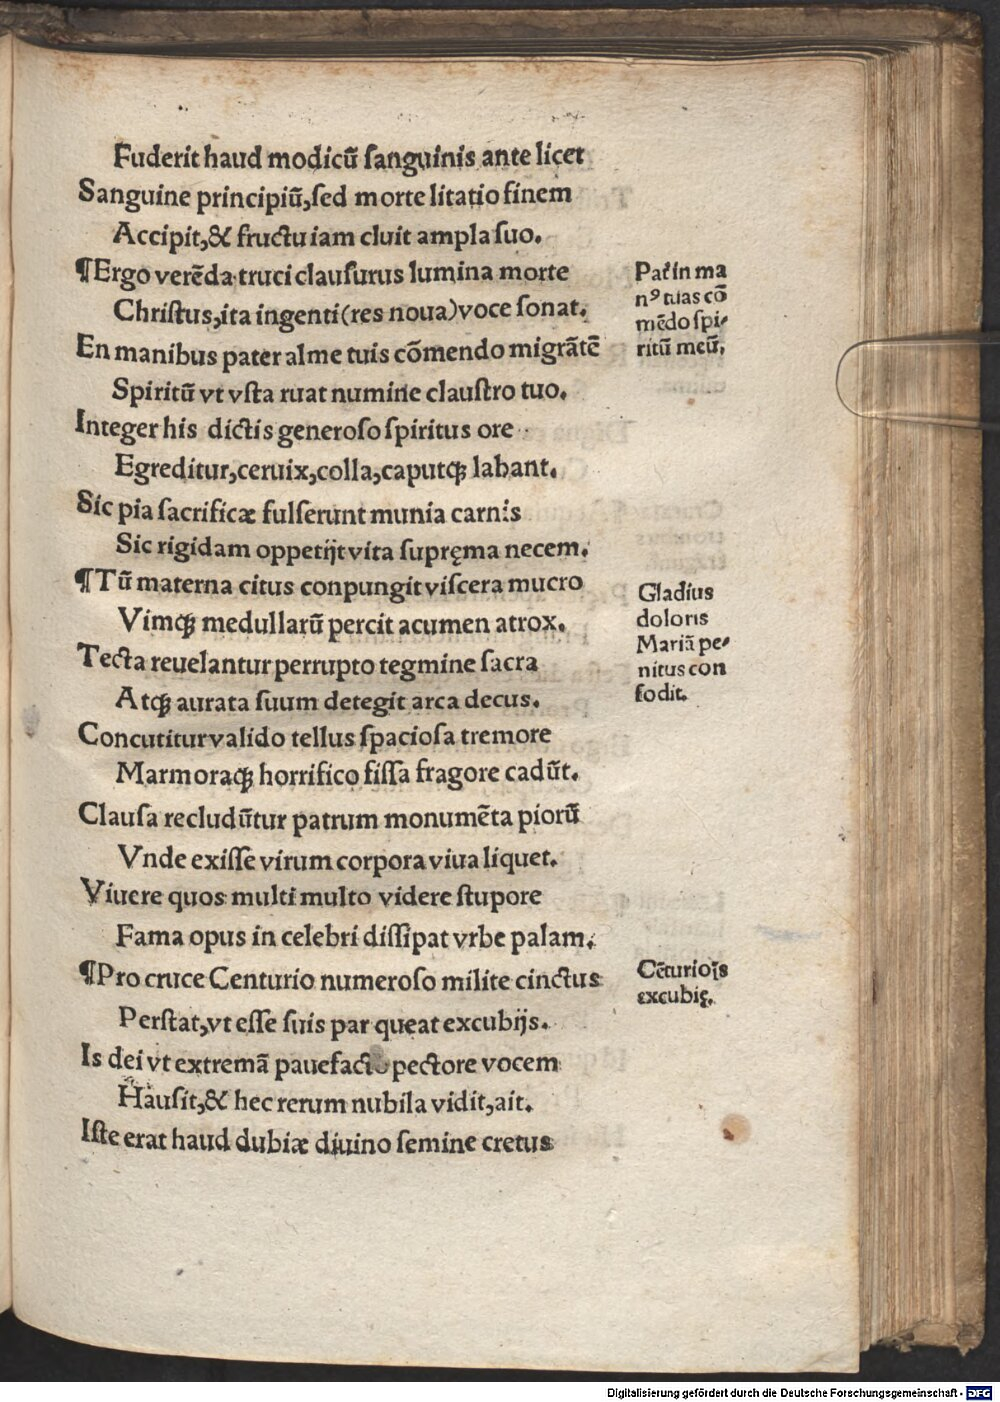 Fuderit haud modicū ſanguinis ante licet
Sanguine principiū,ſed morte litatio finem
Accipit,& fructu iam cluit ampla ſuo.
¶Ergo verēda truci clauſurus lumina morte
Chriſtus,ita ingenti(res noua)voce ſonat.
En manibus pater alme tuis cōmendo migrātē
Spiritū vt vſta ruat numine clauſtro tuo.
Integer his dictis generoſo ſpiritus ore
Egreditur,ceruix,colla,caputqꝫ labant.
Sic pia ſacrificæ fulſerunt munia carnis
Sic rigidam oppetijt vita ſupręma necem.
¶Tū materna citus conpungit viſcera mucro
Vimqꝫ medullarū percit acumen atrox.
Tecta reuelantur perrupto tegmine ſacra
Atqꝫ aurata ſuum detegit arca decus.
Concutitur valido tellus ſpacioſa tremore
Marmoraqꝫ horrifico fiſſa fragore cadūt.
Clauſa recludūtur patrum monumēta piorū
Vnde exiſſe virum corpora viua liquet.
Viuere quos multi multo videre ſtupore
Fama opus in celebri diſſipat vrbe palam.
¶Pro cruce Centurio numeroſo milite cinctus
Perſtat,vt eſſe ſuis par queat excubijs.
Is dei vt extremā pauefacto pectore vocem
Hauſit,& hec rerum nubila vidit,ait.
Iſte erat haud dubiæ diuino ſemine cretus
Pat̄ in ma
nꝰ tuas cō
mēdo ſpi-
ritū meū.
Gladius
doloris
Mariā pe-
nitus con
fodit.
Cēturiois
excubię.
Digitalisierung gefördert durch die Deutsche Forschungsgemeinschaft - DFG